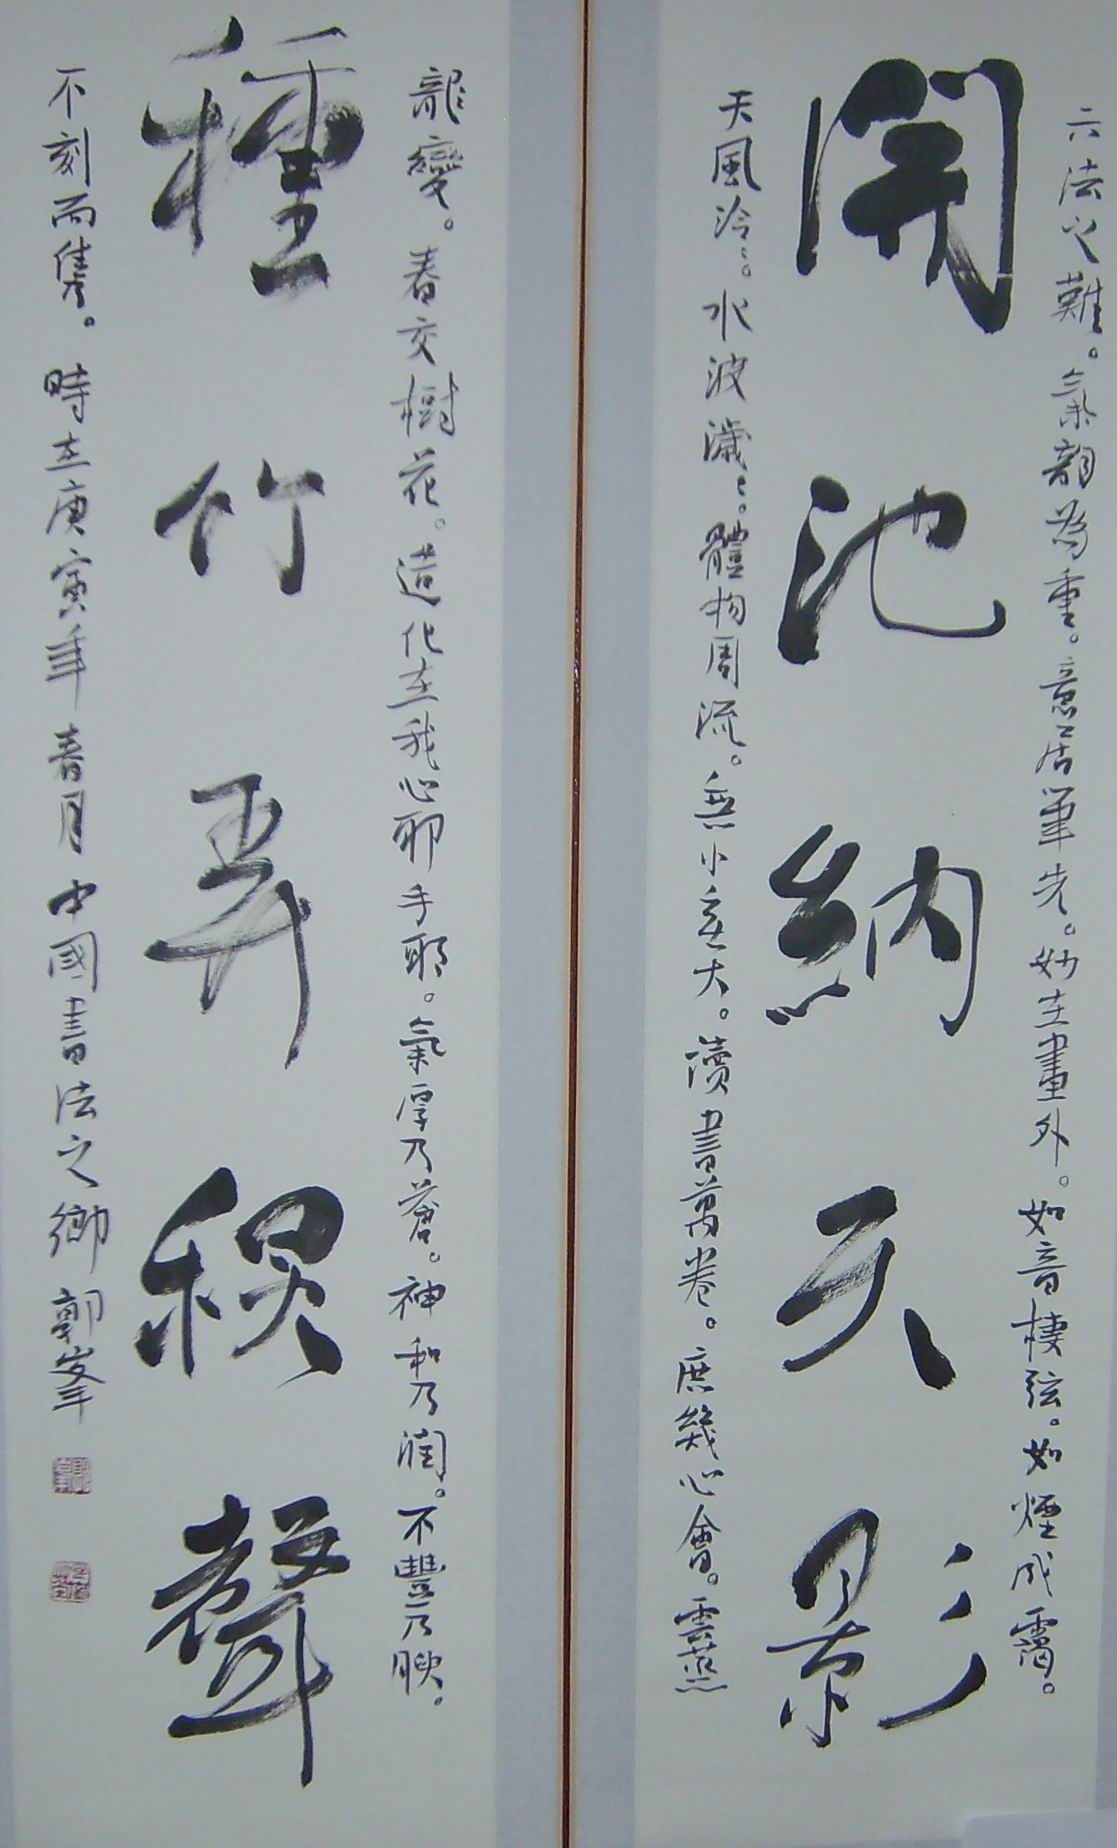 六法之難。氣韻為重。意居筆先。妙在畫外。如音棲弦。如煙成靄。
開池納天影
天風泠〻。水波濊〻。體物周流。無小無大。讀書萬卷。庶幾心會。雲蒸
龍變。春交樹花。造化在我心耶手耶。氣厚乃蒼。神和乃潤。不豐乃腴。
種竹弄秋聲
不刻而雋。時在庚寅年春月中國書法之鄉郭峯